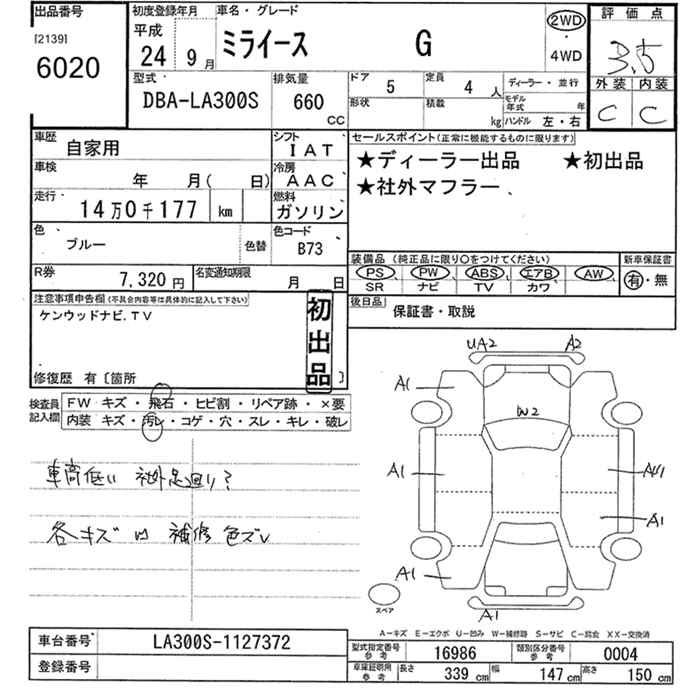 出品番号
[2139]
6020
初度登録年月
平成
24年 9月
車名・グレード
ミライース G
2WD
・
4WD
評価点
3.5
外装 内装
C C
型式
DBA-LA300S
排気量
660
CC
ドア 5
定員 4人
形状
積載 kg
ディーラー・並行
モデル年式 年
ハンドル 左・右
車歴 自家用
シフト IAT
車検 年 月( 日)
冷房 AAC
走行 14万0千177 km
燃料 ガソリン
色 ブルー 色替
色コード B73
R券 7,320円
名変通知期限 月 日
セールスポイント(正常に機能するものに限ります)
★ディーラー出品 ★初出品
★社外マフラー、
装備品 (純正品に限り○をつけてください)
PS PW ABS エアB AW
SR ナビ TV カワ
新車保証書
有・無
後日品 保証書・取説
注意事項申告欄(不具合内容等は具体的に記入して下さい)
ケンウッドナビ.TV
初出品
修復歴 有〔箇所 〕
検査員記入欄
FW キズ・飛石・ヒビ割・リペア跡・×要
内装 キズ・汚レ・コゲ・穴・スレ・キレ・破レ
車高低い 社外足廻り?
各キズ凹 補修 色ズレ
UA2 A2
A1
W2
A1 AU1
A1
A1
A1
スペア
A-キズ E-エクボ U-凹み W-補修跡 S-サビ C-腐食 XX-交換済
車台番号 LA300S-1127372
登録番号
型式指定番号 参考 16986
類別区分番号 参考 0004
車庫証明用 参考 長さ 339cm 幅 147cm 高さ 150cm